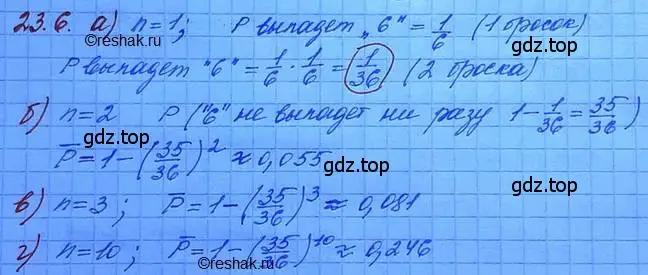 23.6. а) n=1; P выпадет "6" = 1/6 (1 бросок)
©reshak.ru
gdz.top
P выпадет "6" = 1/6 · 1/6 = 1/36 (2 броска)
б) n=2 P ("6" не выпадет ни разу 1-1/36=35/36)
gdz.top
gdz.top
P̅=1-(35/36)² ≈ 0,055
в) n=3; P̅=1-(35/36)³ ≈ 0,081
gdz.top
г) n=10; P̅=1-(35/36)¹⁰ ≈ 0,246
©reshak.ru
gdz.top